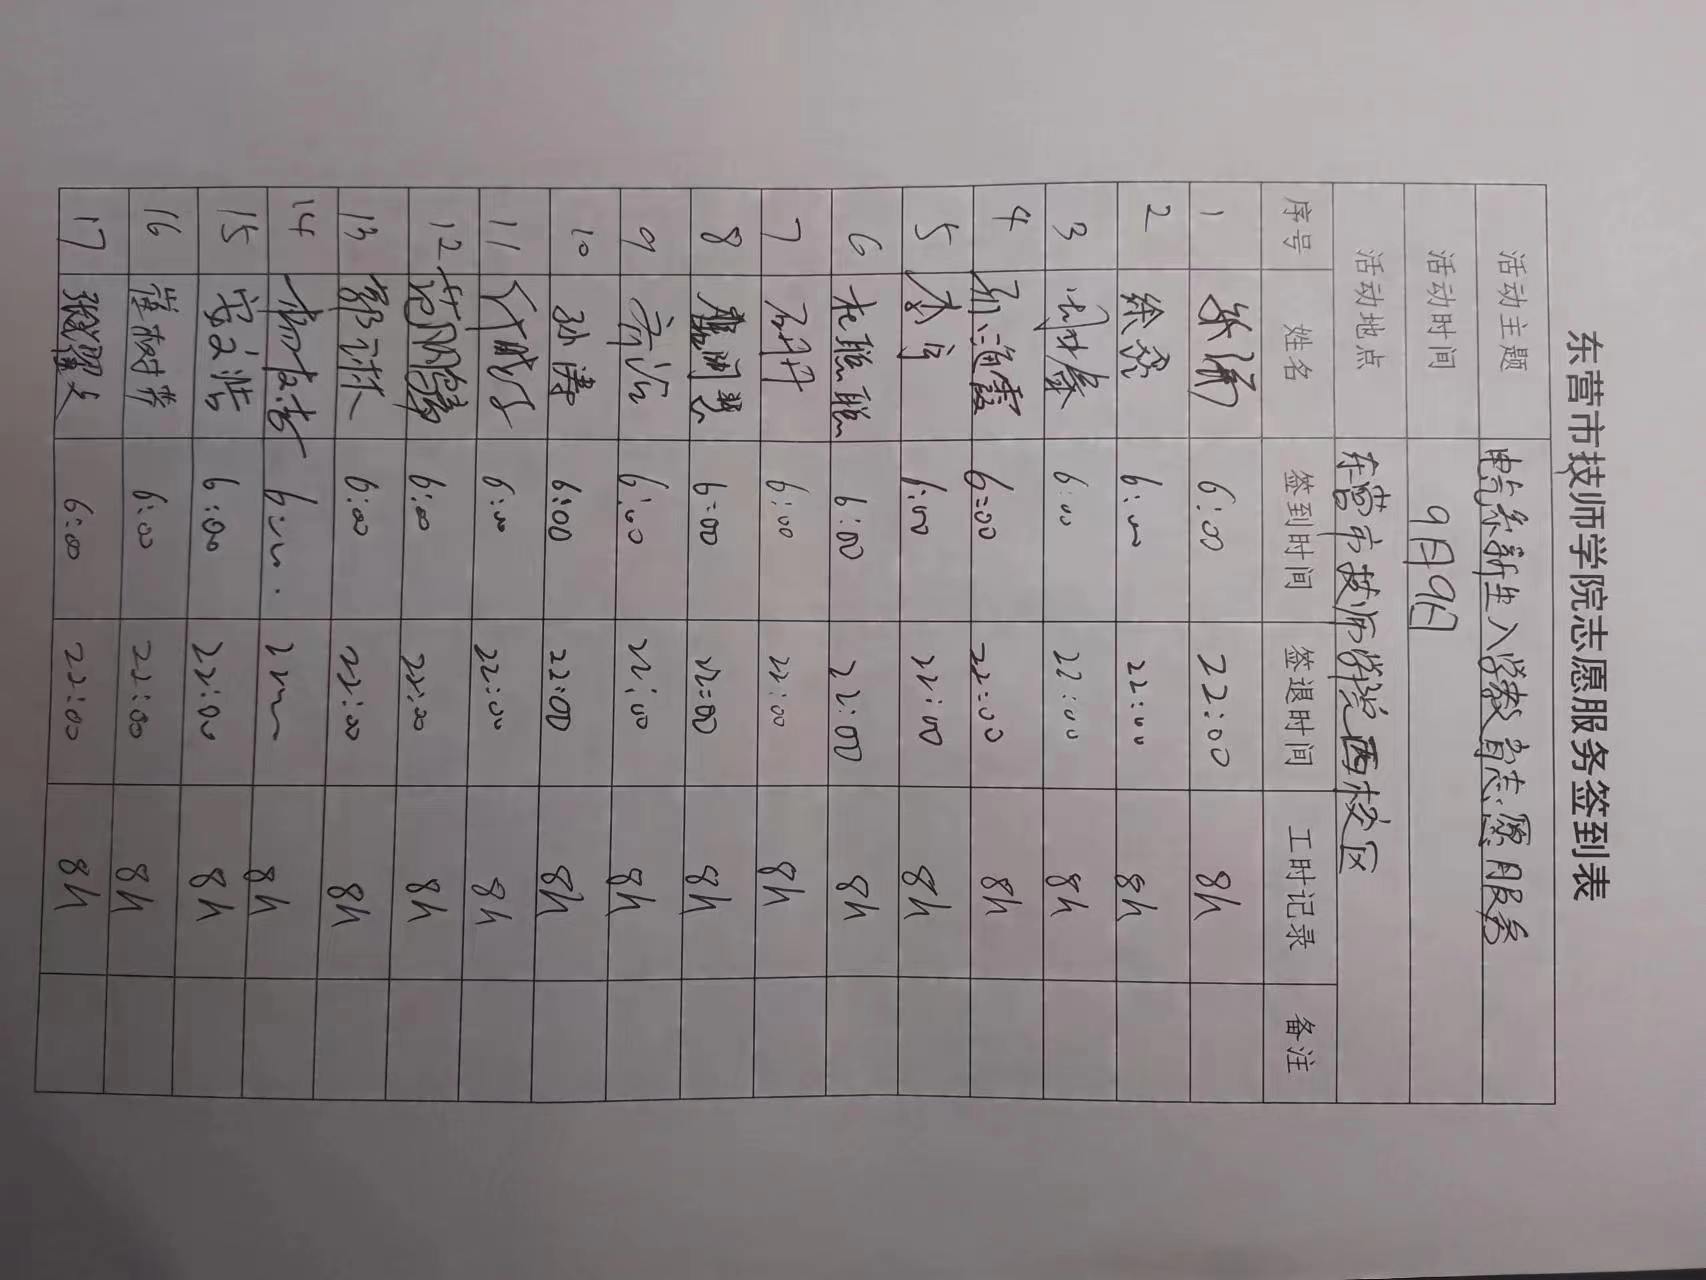 东营市技师学院志愿服务签到表
活动主题 电气系新生入学教育志愿服务
活动时间 9月9日
活动地点 东营市技师学院西校区
序号 姓名 签到时间 签退时间 工时记录 备注
1 6:00 22:00 8h
2 徐 6:00 22:00 8h
3 6:00 22:00 8h
4 6:00 22:00 8h
5 6:00 22:00 8h
6 杜聪聪 6:00 22:00 8h
7 6:00 22:00 8h
8 6:00 22:00 8h
9 6:00 22:00 8h
10 孙涛 6:00 22:00 8h
11 6:00 22:00 8h
12 6:00 22:00 8h
13 6:00 22:00 8h
14 8h
15 6:00 22:00 8h
16 崔 6:00 22:00 8h
17 张 6:00 22:00 8h